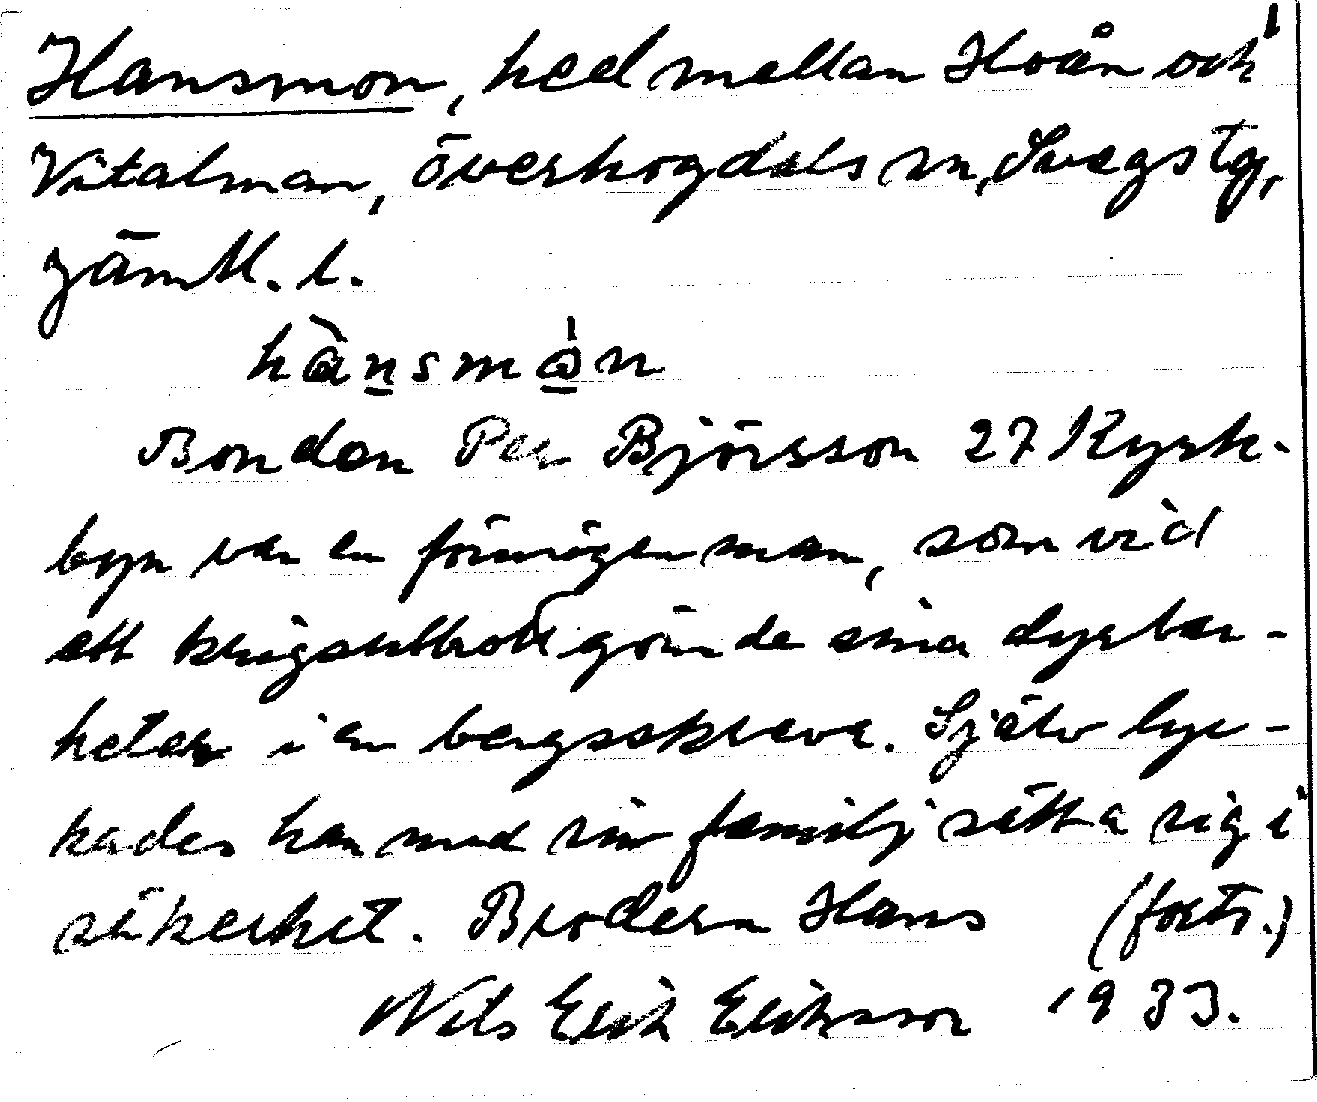 Hansmon, hed mellan Hoån och
Vitalman, Överhogdals sn, Svegs tg,
Jämtl. l.
hànsmòn
Bonden Per Björsson 27 Kyrk-
byn var en förmögen man, som vid
ett krigsutbrott gömde sina dyrbar-
heter i en bergsskreva. Själv lyc-
kades han med sin familj sätta sig i
säkerhet. Brodern Hans (forts.)
Nils Erik Eriksson 1933.